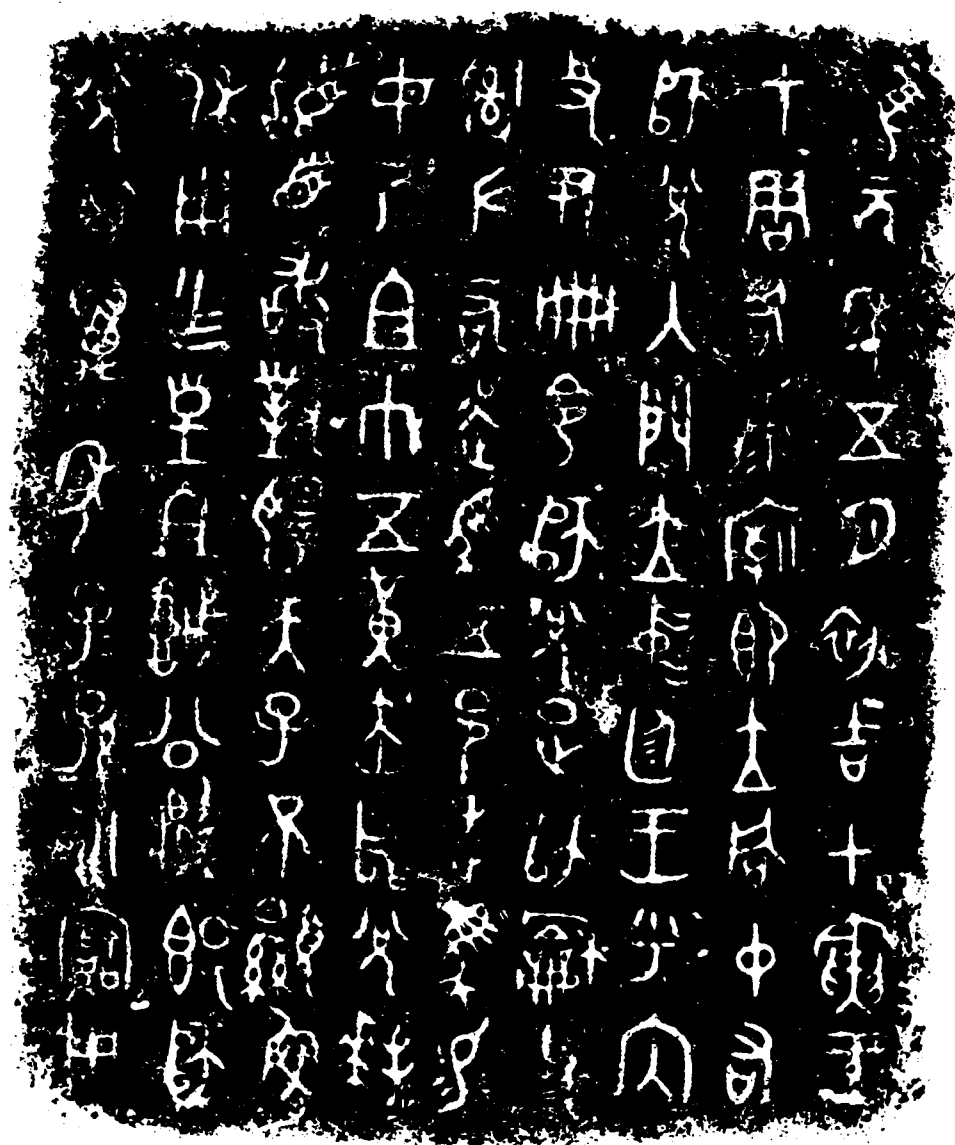 隹元年五月初吉甲寅王
才周各康廟即立同中右
師兌入門立中廷王乎內
史尹冊令師兌疋師龢父
𤔲左右走馬五邑走馬易
女乃且巾五黃赤舄兌拜
䭫首敢對揚天子不顯魯
休用乍皇且城公𩰫簋師
兌其萬年子子孫孫永寶用